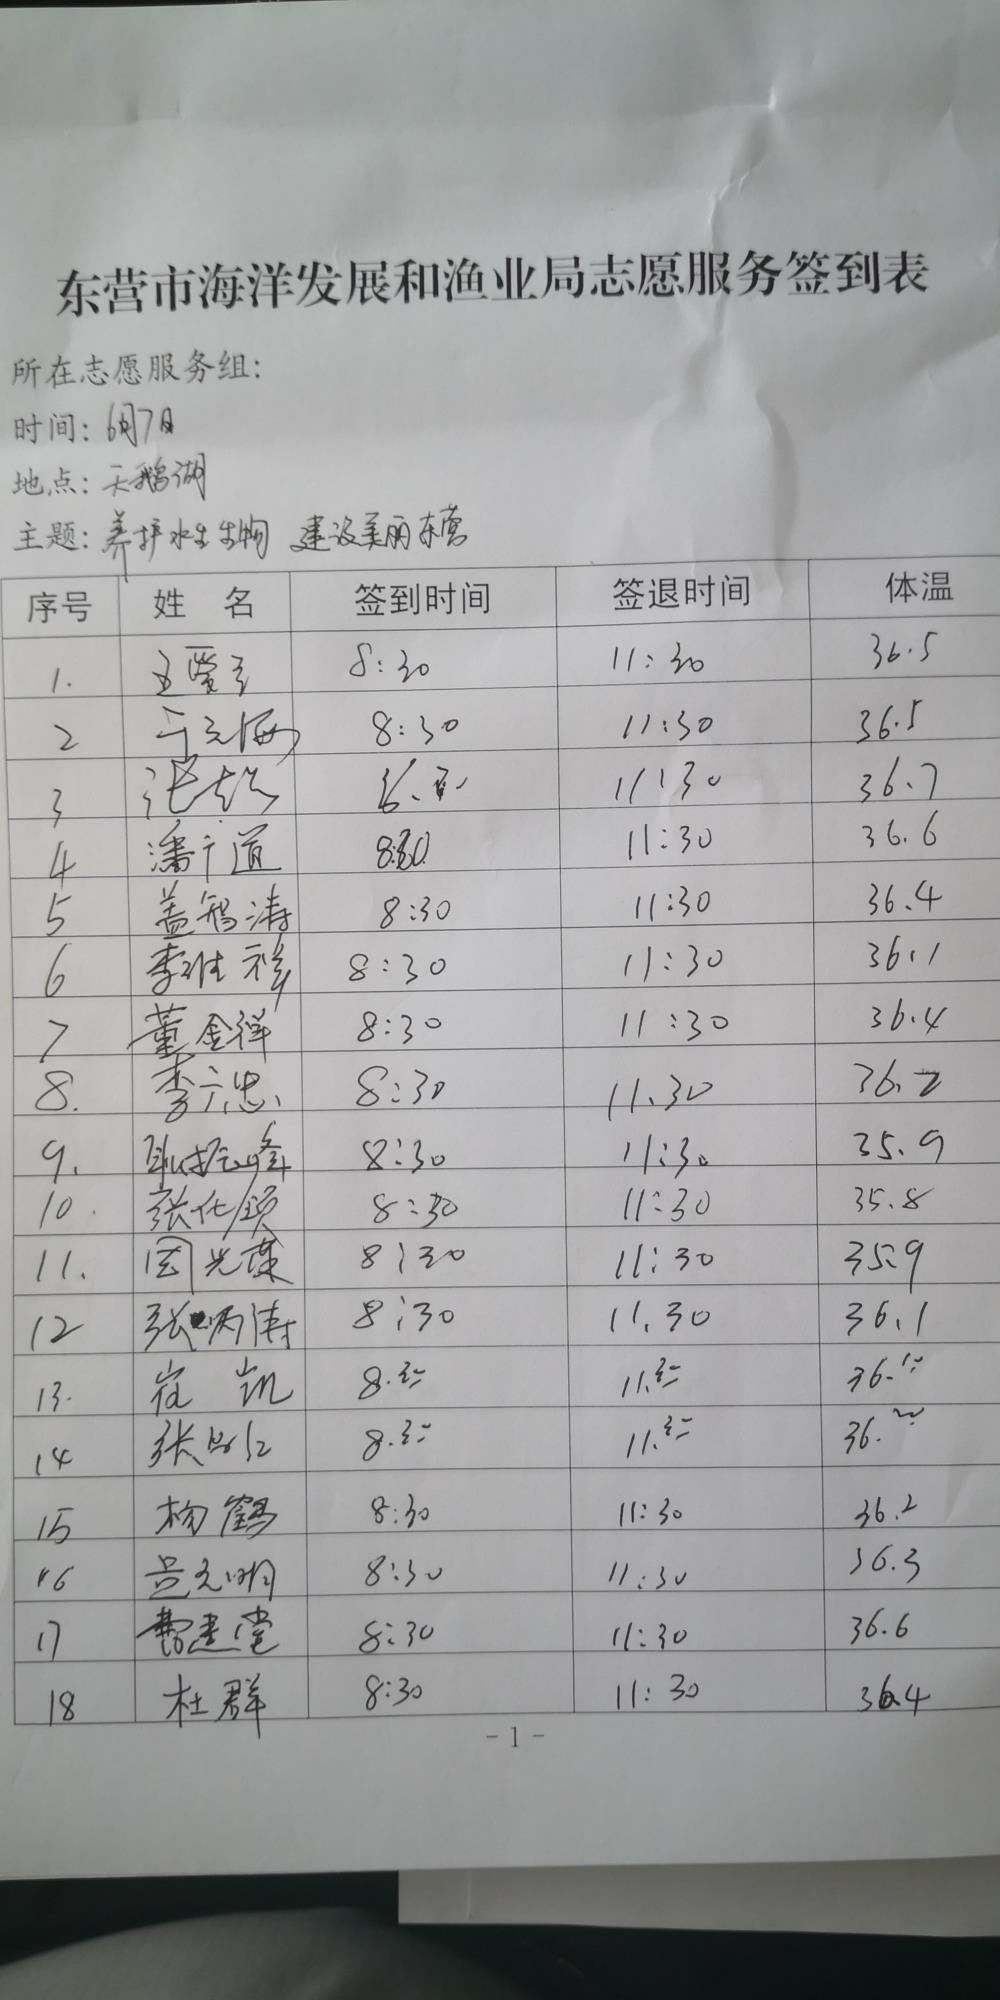 东营市海洋发展和渔业局志愿服务签到表
所在志愿服务组:
时间: 6月7日
地点: 天鹅湖
主题: 养护水生生物 建设美丽东营
序号 姓 名 签到时间 签退时间 体温
1. 8:30 11:30 36.5
2 8:30 11:30 36.5
3 11:30 36.7
4 潘广道 8:30 11:30 36.6
5 盖鹤涛 8:30 11:30 36.4
6 李维祥 8:30 11:30 36.1
7 董金祥 8:30 11:30 36.4
8. 李六忠 8:30 11.30 36.2
9. 8:30 11:30 35.9
10. 8:30 11:30 35.8
11. 8:30 11:30 35.9
12 张炳涛 8:30 11.30 36.1
13. 崔凯 8.30 11.30
14 8.30 11.30
15 杨鹤 8:30 11:30 36.2
16 吕光明 8:30 11:30 36.3
17 曹建堂 8:30 11:30 36.6
18 杜群 8:30 11:30 36.4
- 1 -